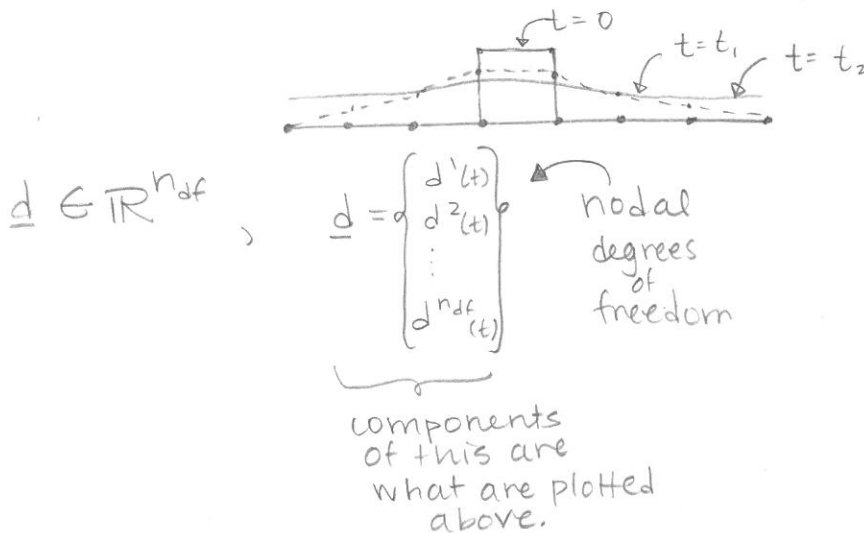 t=0
t=t₁
t=t₂
d ∈ ℝ^{n_{df}} , d = { d¹(t) d²(t) ⋮ d^{n_{df}}(t) }
nodal
degrees
of
freedom
components
of this are
what are plotted
above.